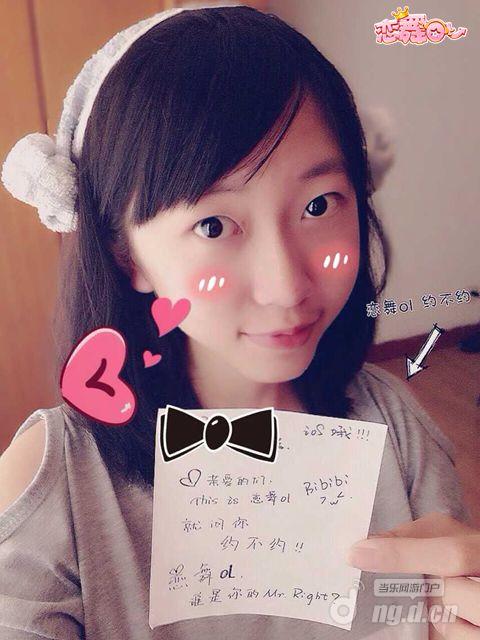 恋舞OL
恋舞ol 约不约
ioS哦!!!
亲爱的们.
Bibibi
This is 恋舞ol
就问你
约不约!!
恋舞OL.
谁是你的Mr Right?
当乐网游门户
d.ng.d.cn